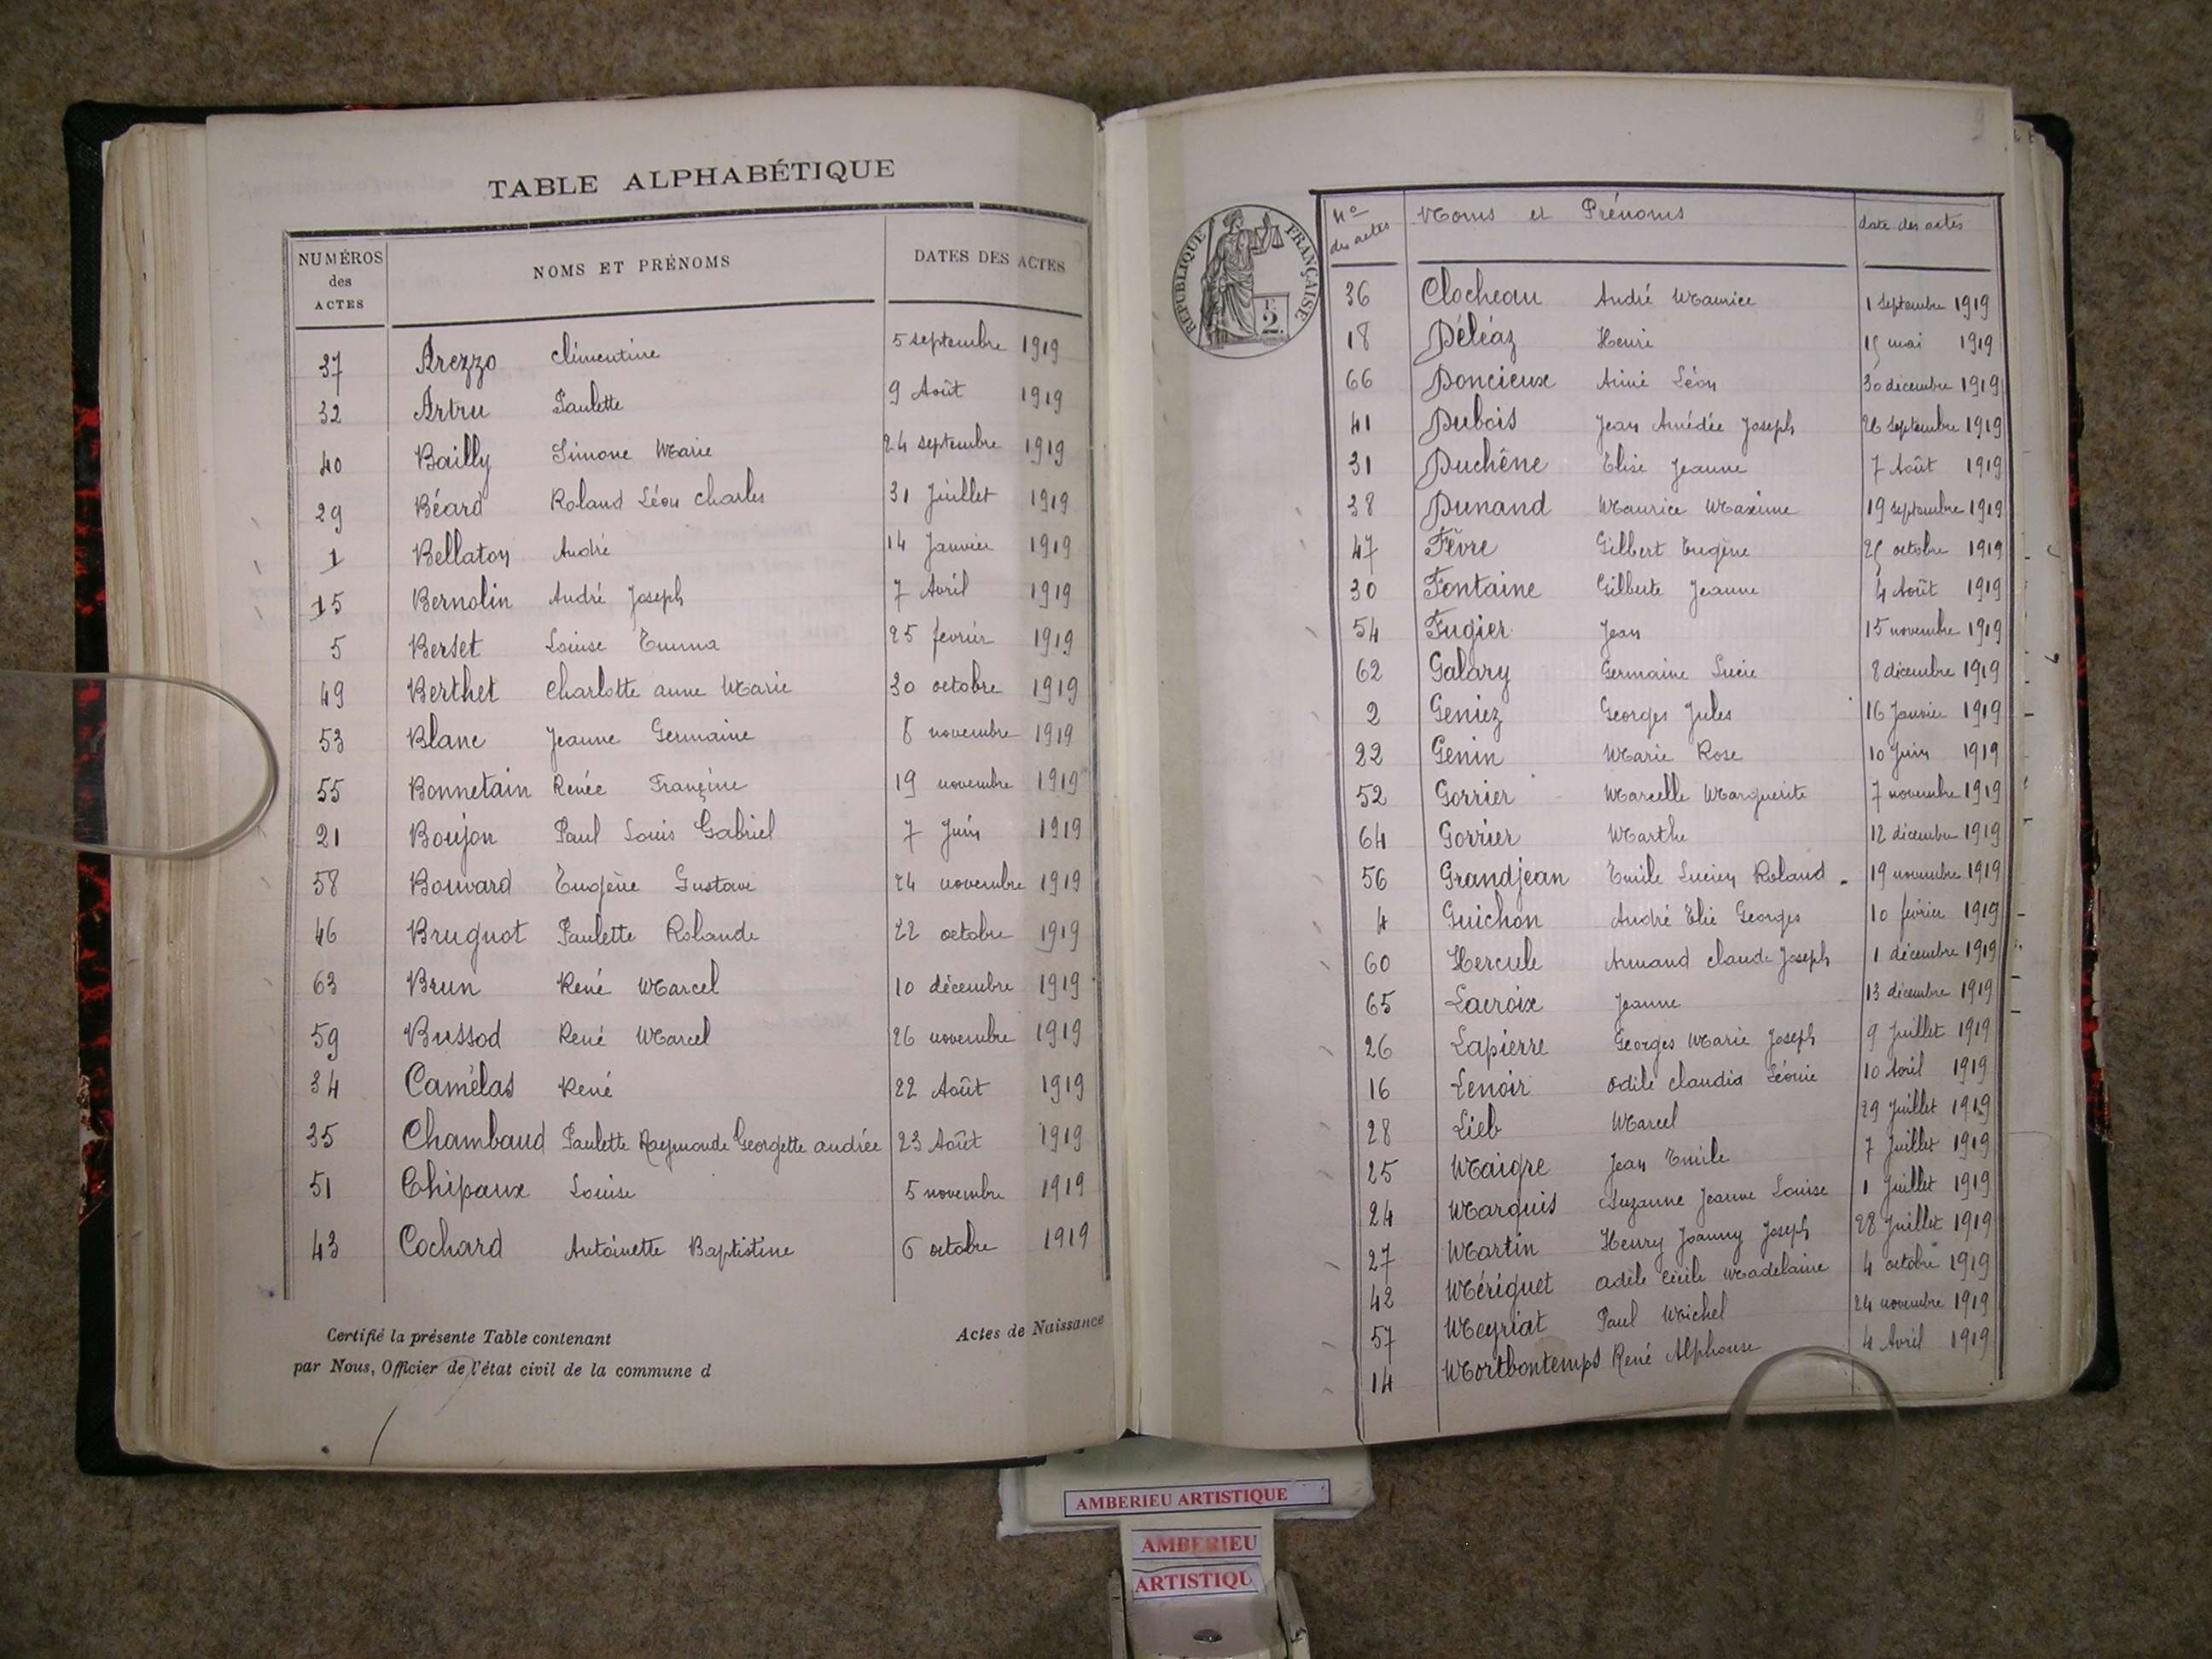 TABLE ALPHABÉTIQUE
NUMÉROS des ACTES NOMS ET PRÉNOMS DATES DES ACTES
37 Arezzo Clémentine 5 septembre 1919
32 Artru Paulette 9 Août 1919
40 Bailly Simone Marie 24 septembre 1919
29 Béard Roland Léon Charles 31 Juillet 1919
1 Bellaton André 14 Janvier 1919
15 Bernolin André Joseph 7 Avril 1919
5 Berset Louise Emma 25 fevrier 1919
49 Berthet Charlotte anne Marie 30 octobre 1919
53 Blanc Jeanne Germaine 8 novembre 1919
55 Bonnetain Renée Françine 19 novembre 1919
21 Boujon Paul Louis Gabriel 7 Juin 1919
58 Bouvard Eugène Gustave 24 novembre 1919
46 Bruguot Paulette Rolande 22 octobre 1919
63 Brun René Marcel 10 décembre 1919
59 Bussod René Marcel 26 novembre 1919
34 Camélas René 22 Août 1919
35 Chambaud Paulette Raymonde Georgette andrée 23 Août 1919
51 Chipaux Louise 5 novembre 1919
43 Cochard Antoinette Baptistine 6 octobre 1919
Certifié la présente Table contenant Actes de Naissance
par Nous, Officier de l'état civil de la commune d
RÉPUBLIQUE FRANÇAISE
2
nº des actes Noms et Prénoms date des actes
36 Clocheau André Maurice 1 septembre 1919
18 Déléaz Henri 15 mai 1919
66 Doncieux Aimé Léon 30 décembre 1919
41 Dubois Jean Amédée Joseph 26 septembre 1919
31 Duchêne Elise Jeanne 7 Août 1919
38 Dunand Maurice Maxime 19 septembre 1919
47 Fèvre Gilbert Eugène 25 octobre 1919
30 Fontaine Gilberte Jeanne 4 Août 1919
54 Fugier Jean 15 novembre 1919
62 Galary Germaine Lucie 8 décembre 1919
2 Geniez Georges Jules 16 Janvier 1919
22 Genin Marie Rose 10 Juin 1919
52 Gorrier Marcelle Marguerite 7 novembre 1919
64 Gorrier Marthe 12 décembre 1919
56 Grandjean Emile Lucien Roland 19 novembre 1919
4 Guichon André Elie Georges 10 février 1919
60 Hercule Armand claude Joseph 1 décembre 1919
65 Lacroix Jeanne 13 décembre 1919
26 Lapierre Georges Marie Joseph 9 Juillet 1919
16 Lenoir Odile claudia Léonie 10 Avril 1919
28 Lieb Marcel 29 Juillet 1919
25 Maigre Jean Emile 7 Juillet 1919
24 Marquis Suzanne Jeanne Louise 1 Juillet 1919
27 Martin Henry Joanny Joseph 28 Juillet 1919
42 Mériguet Adèle Cécile Madelaine 4 octobre 1919
57 Meyriat Paul Michel 24 novembre 1919
14 Mortbontemps René Alphonse 4 Avril 1919
AMBERIEU ARTISTIQUE
AMBERIEU
ARTISTIQU